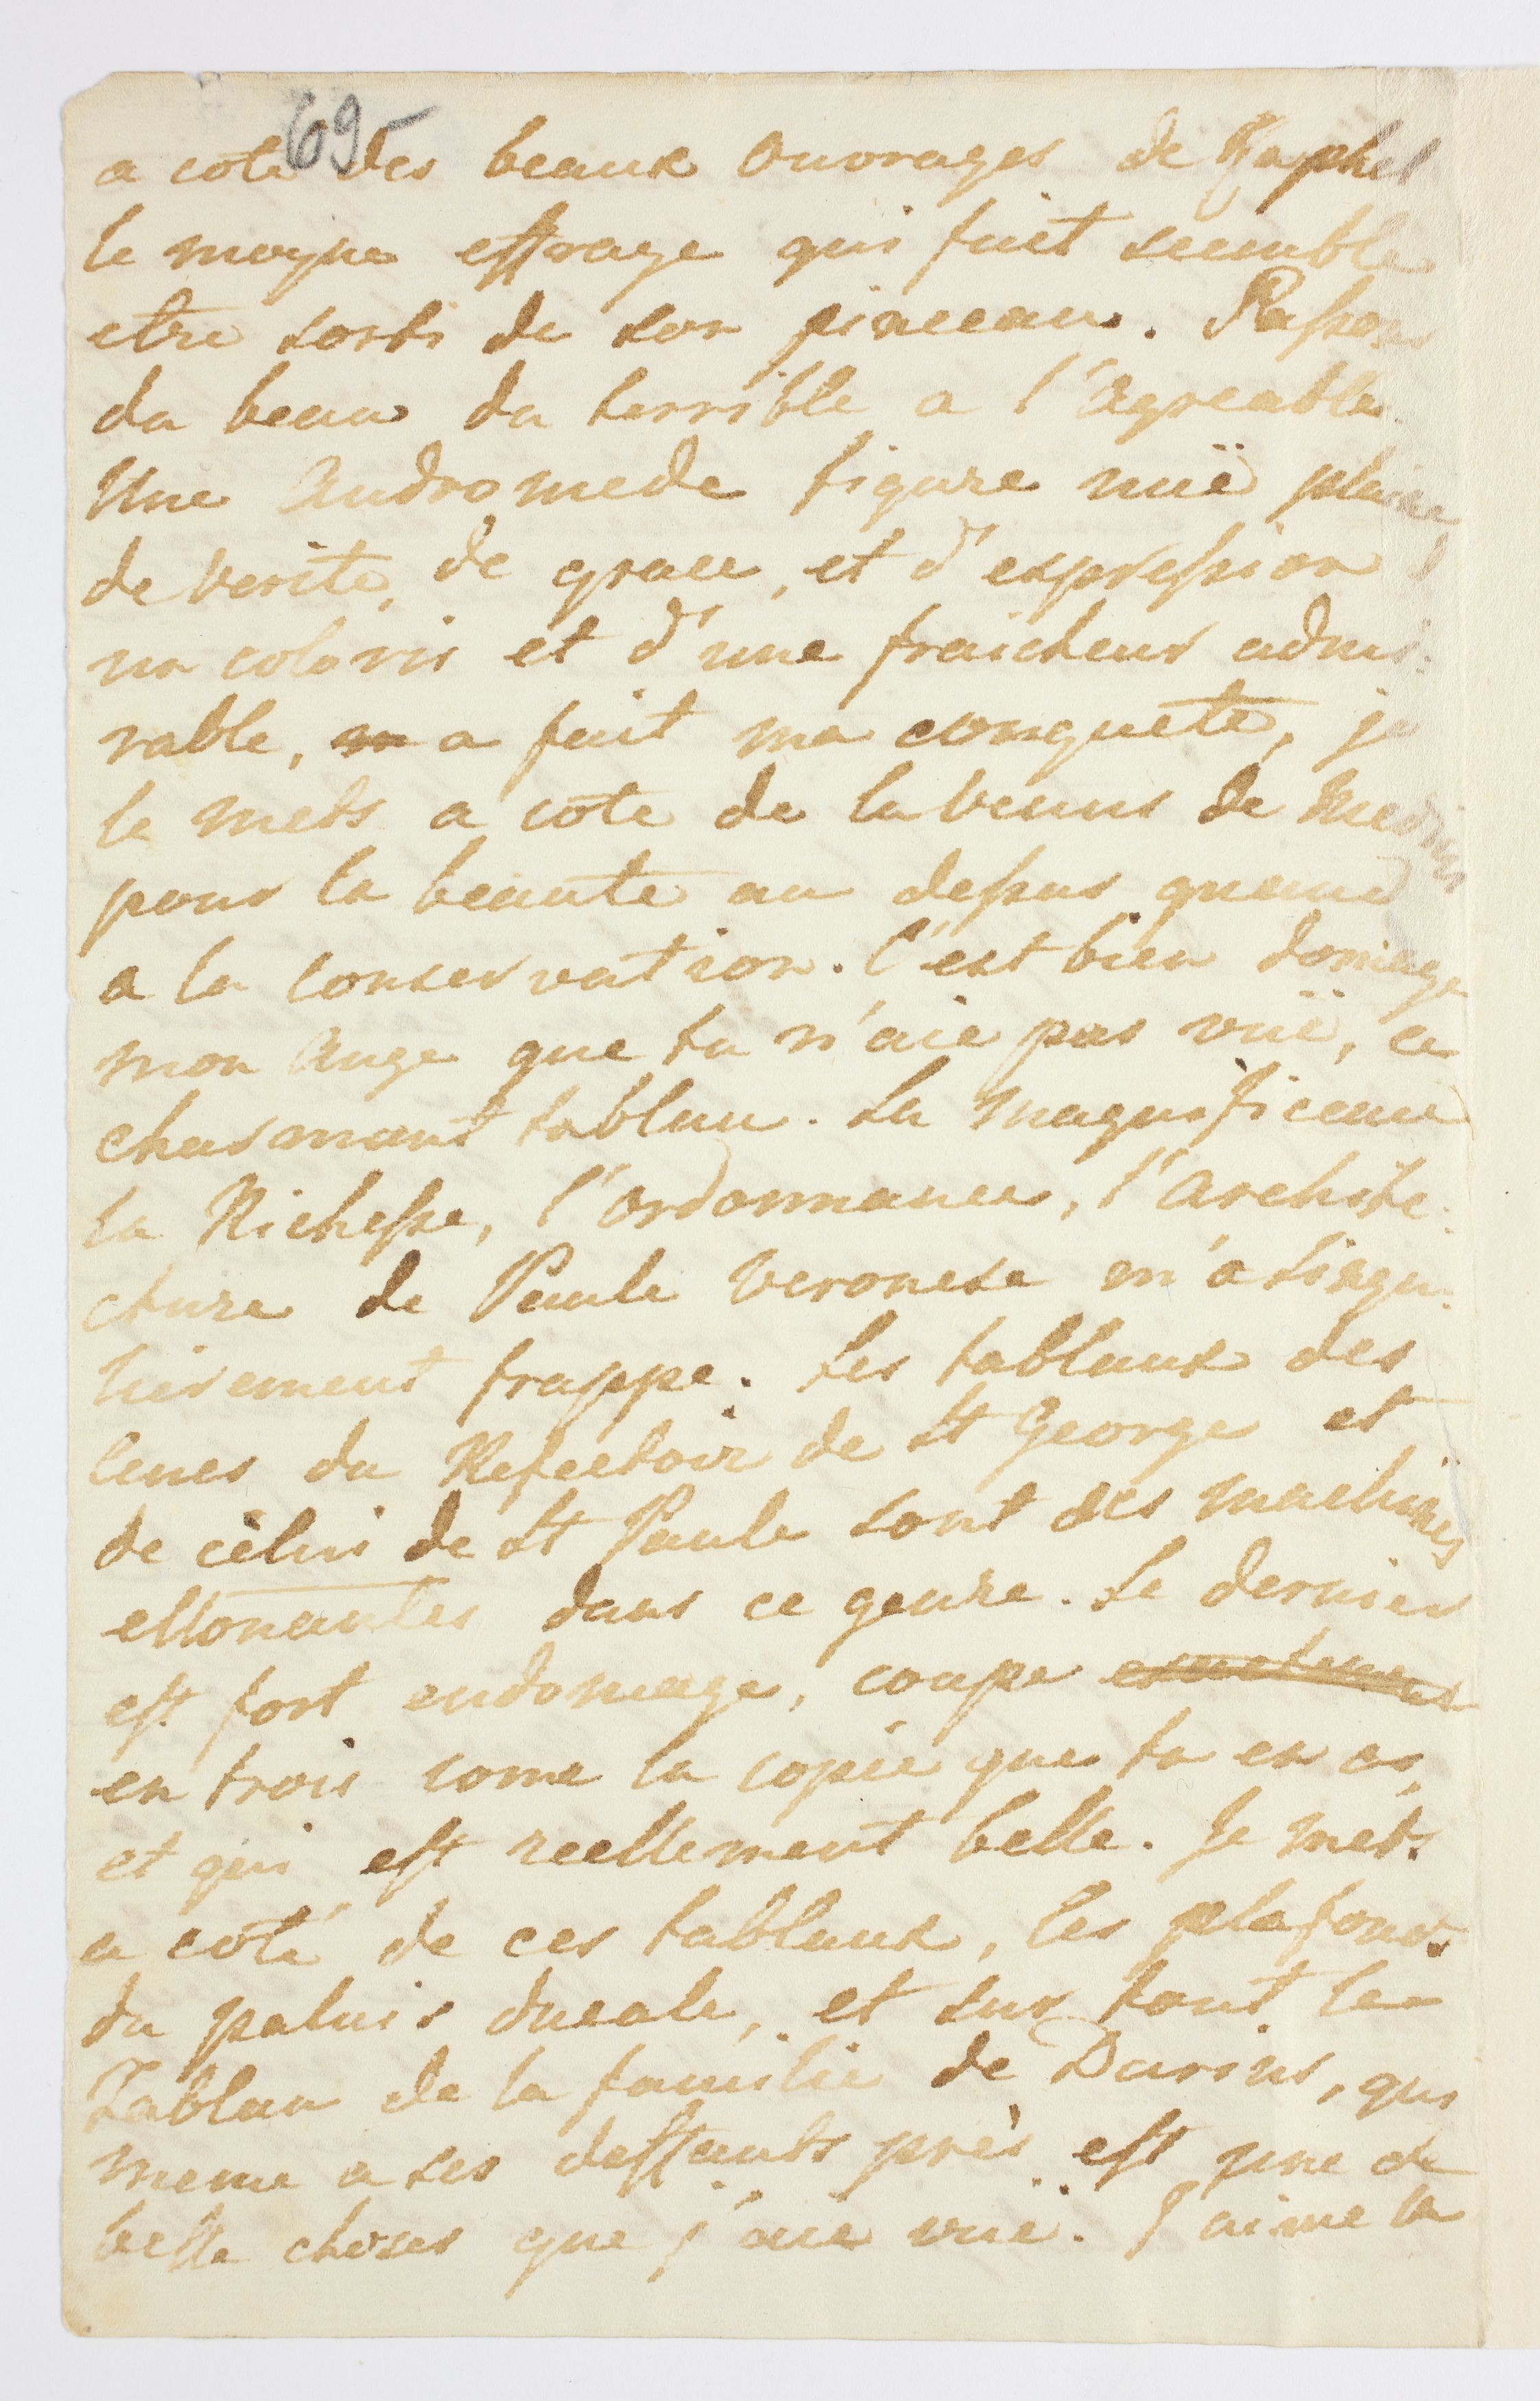 69
a coté des beaux ouvrages de Raphel
le moyne effraye qui fuit semble
etre sorti de son pinceau. Passons
du beau du terrible a l'agreable.
Une Andromede figure nuë pleine
de verite, de grace, et d'expression
un coloris et d'une fraicheur admi:
rable, m a fait ma conquete, je
le mets a côte de la venus de Medicis
pour la beaute au dessus quand
a la conservation. C'est bien domage
mon Ange que tu n'aie pas vuë, ce
charmant tablau. La magnificence
la Richesse, l'ordonnance, l'archite:
cture de Paule Veronese m'a singu:
lierement frappe. Les tablaux des
cenes du Refectoir de St George et
de cèlui de St Paule sont des machines
ettonantes dans ce genre. Le dernier
est fort endomage, coupe
en trois come la copie que tu en as,
et qui est reellement belle. Je mets
a coté de ces tablaux, les plafonds
du palais ducale, et sur tout le
Tablau de la familie de Darius, qui
meme a ses deffauts près est une de
belle choses que j'aie vuë. J'aime la